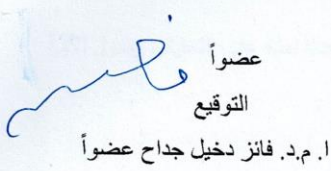 عضواً
التوقيع
ا. م.د. فائز دخيل جداح عضواً